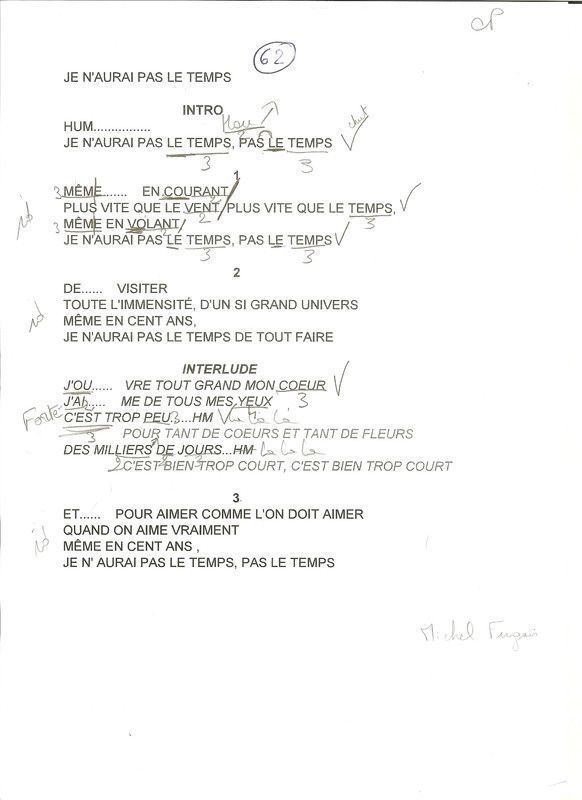 62
JE N'AURAI PAS LE TEMPS
INTRO
HUM...............
JE N'AURAI PAS LE TEMPS, PAS LE TEMPS
3 3
1
3 MÊME....... EN COURANT
id PLUS VITE QUE LE VENT PLUS VITE QUE LE TEMPS,
2 3
3 MÊME EN VOLANT
JE N'AURAI PAS LE TEMPS, PAS LE TEMPS
3 3
2
DE...... VISITER
TOUTE L'IMMENSITÉ, D'UN SI GRAND UNIVERS
id MÊME EN CENT ANS,
JE N'AURAI PAS LE TEMPS DE TOUT FAIRE
INTERLUDE
J'OU...... VRE TOUT GRAND MON COEUR
J'AI...... ME DE TOUS MES YEUX 3
Forte C'EST TROP PEU.3...HM la la
3 POUR TANT DE COEURS ET TANT DE FLEURS
DES MILLIERS DE JOURS...HM la la la
2 C'EST BIEN TROP COURT, C'EST BIEN TROP COURT
3
ET...... POUR AIMER COMME L'ON DOIT AIMER
QUAND ON AIME VRAIMENT
id MÊME EN CENT ANS ,
JE N' AURAI PAS LE TEMPS, PAS LE TEMPS
Michel Fugain